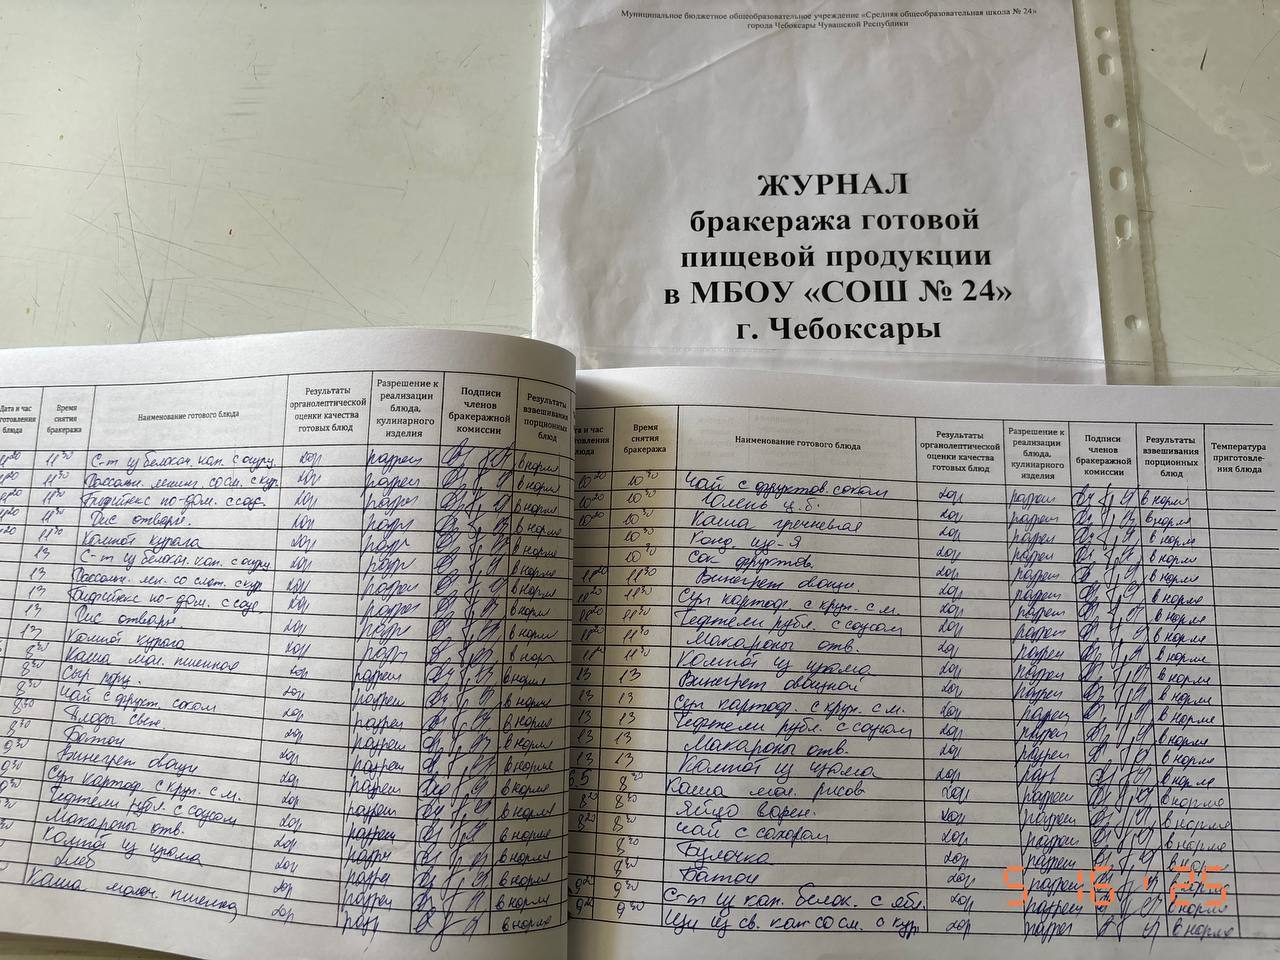 Муниципальное бюджетное общеобразовательное учреждение «Средняя общеобразовательная школа № 24»
города Чебоксары Чувашской Республики
ЖУРНАЛ
бракеража готовой
пищевой продукции
в МБОУ «СОШ № 24»
г. Чебоксары
Дата и час готовления блюда Время снятия бракеража Наименование готового блюда Результаты органолептической оценки качества готовых блюд Разрешение к реализации блюда, кулинарного изделия Подписи членов бракеражной комиссии Результаты взвешивания порционных блюд
11 20 11 30 С-т из белокоч. кап. с огурц. хор разреш в норме
11 30 Рассольн. ленинг. со см. с кур. хор разреш в норме
11 30 по-дом. с соус. хор разреш в норме
11 30 Рис отварн. хор разр в норме
11 30 Компот курага хор разр в норме
13 С-т из белокоч. кап. с огурц. хор разр в норме
13 Рассольн. лен. со смет. с кур хор разреш в норме
13 по-дом. с соус хор разреш в норме
13 Рис отварн хор разр в норме
13 Компот курага хор разр в норм
8 30 Каша мол. пшенная хор разреш в норме
8 30 Сыр порц. хор разреш в норме
8 30 Чай с фрукт. соком хор разреш в норме
8 30 Плоды свеж. хор разреш в норме
8 30 Батон хор разреш в норме
9 30 Винегрет овощн хор разреш в норме
9 30 Суп картоф. с круп. с м. хор разреш в норме
Тефтели рубл. с соусом хор разреш в норме
Макароны отв. хор разреш в норме
Компот из изюма хор разреш в норме
Хлеб хор разреш в норме
Каша молоч. пшенная хор разр в норме
та и час товления люда Время снятия бракеража Наименование готового блюда Результаты органолептической оценки качества готовых блюд Разрешение к реализации блюда, кулинарного изделия Подписи членов бракеражной комиссии Результаты взвешивания порционных блюд Температура приготовле-ния блюда
10 20 10 30 Чай с фруктов. соком хор разреш в норме
10 20 10 30 ц.б. хор разреш в норме
10 20 10 30 Каша гречневая хор разреш в норме
10 30 Конд. изд-я хор разреш в норме
10 30 Сок фруктов. хор разреш в норме
11 20 11 30 Винегрет овощн. хор разреш в норме
11 20 11 30 Суп картоф. с круп. с м. хор разреш в норме
11 20 11 30 Тефтели рубл. с соусом хор разреш в норме
11 20 11 30 Макароны отв. хор разреш в норме
11 20 11 30 Компот из изюма хор разреш в норме
13 13 Винегрет овощной хор разреш в норме
13 13 Суп картоф. с круп. с м. хор разреш в норме
13 13 Тефтели рубл. с соусом хор разреш в норме
13 13 Макароны отв. хор разреш в норме
13 13 Компот из изюма хор разр в норме
8 30 Каша мол. рисов хор разреш в норме
8 20 8 30 Яйцо варен. хор разреш в норме
8 20 8 30 Чай с сахаром хор разреш в норме
8 30 Булочка хор разреш в норме
8 30 Батон хор разреш в норме
9 20 9 30 С-т из кап. белок. с ябл. хор разреш в норме
9 20 9 30 Щи из св. кап со см. с кур хор разреш в норме
5 16 '25